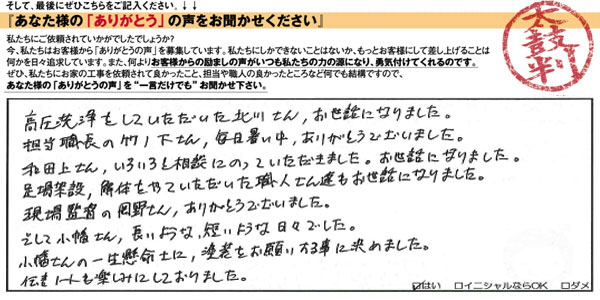 そして、最後にぜひこちらをご記入ください。↓↓
『あなた様の「ありがとう」の声をお聞かせください』
私たちにご依頼されていかがでしたでしょうか?
今、私たちはお客様から「ありがとうの声」を募集しています。私たちにしかできないことはないか、もっとお客様にして差し上げることは
何かを日々追求しています。また、何よりお客様からの励ましの声がいつも私たちの力の源になり、勇気付けてくれるのです。
ぜひ、私たちにお家の工事を依頼されて良かったこと、担当や職人の良かったところなど何でも結構ですので、
あなた様の「ありがとうの声」を“一言だけでも”お聞かせ下さい。
太鼓判
高圧洗浄をしていただいた北川さん,お世話になりました。
担当職長の竹ノ下さん,毎日暑い中,ありがとうございました。
和田上さん,いろいろと相談にのっていただきました。お世話になりました。
足場架設,解体をやっていただいた職人さん達もお世話になりました。
現場監督の岡野さん,ありがとうございました。
そして小幡さん,長いような,短いような日々でした。
小幡さんの一生懸命さに,塗装をお願いする事に決めました。
伝言ノートも楽しみにしておりました。
☑はい ロイニシャルならOK ロダメ